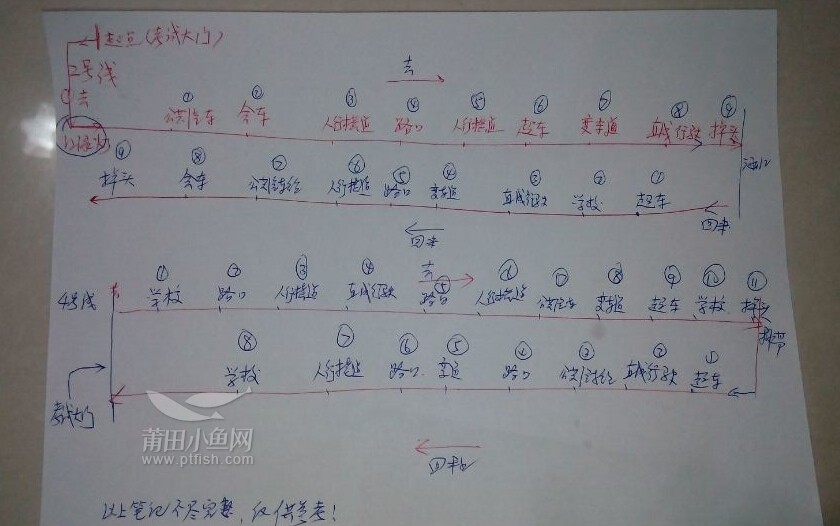 起点(考试大门)
2号线
去
①去
① ② ③ ④ ⑤ ⑥ ⑦ ⑧ ⑨
公共汽车 会车 人行横道 路口 人行横道 超车 变车道 直线行驶 掉头
⑨ ⑧ ⑦ ⑥ ⑤ ④ ③ ② ①
掉头 会车 公共汽车 人行横道 路口 变道 直线行驶 学校 超车
回来 回来
4号线
去 去
① ② ③ ④ ⑤ ⑥ ⑦ ⑧ ⑨ ⑩ ⑪
学校 路口 人行横道 直线行驶 路口 人行横道 公共汽车 变车道 超车 学校 掉头
⑧ ⑦ ⑥ ⑤ ④ ③ ② ①
学校 人行横道 路口 变道 路口 直线行驶 超车
考试大门
回来
莆田小鱼网
www.ptfish.com
以上笔记不尽完整,仅供参考!